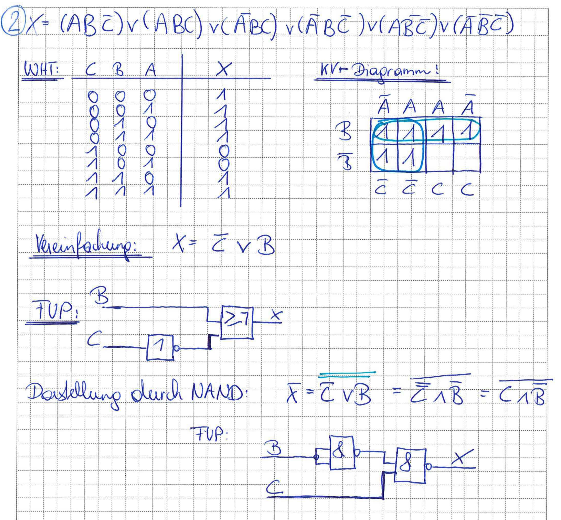 ② X = (ABC̅) ∨ (ABC) ∨ (A̅BC) ∨ (A̅BC̅) ∨ (AB̅C̅) ∨ (A̅B̅C̅)
WHT: C B A X
0 0 0 1
0 0 1 1
0 1 0 1
0 1 1 1
1 0 0 0
1 0 1 0
1 1 0 1
1 1 1 1
KV-Diagramm:
A̅ A A A̅
B 1 1 1 1
B̅ 1 1
C̅ C̅ C C
Vereinfachung: X = C̅ ∨ B
FUP:
B
≥1 X
C 1
Darstellung durch NAND: X̅ = \overline{C̅ ∨ B} = \overline{\overline{C̅} ∧ B̅} = \overline{C ∧ B̅}
FUP:
B & & X
C